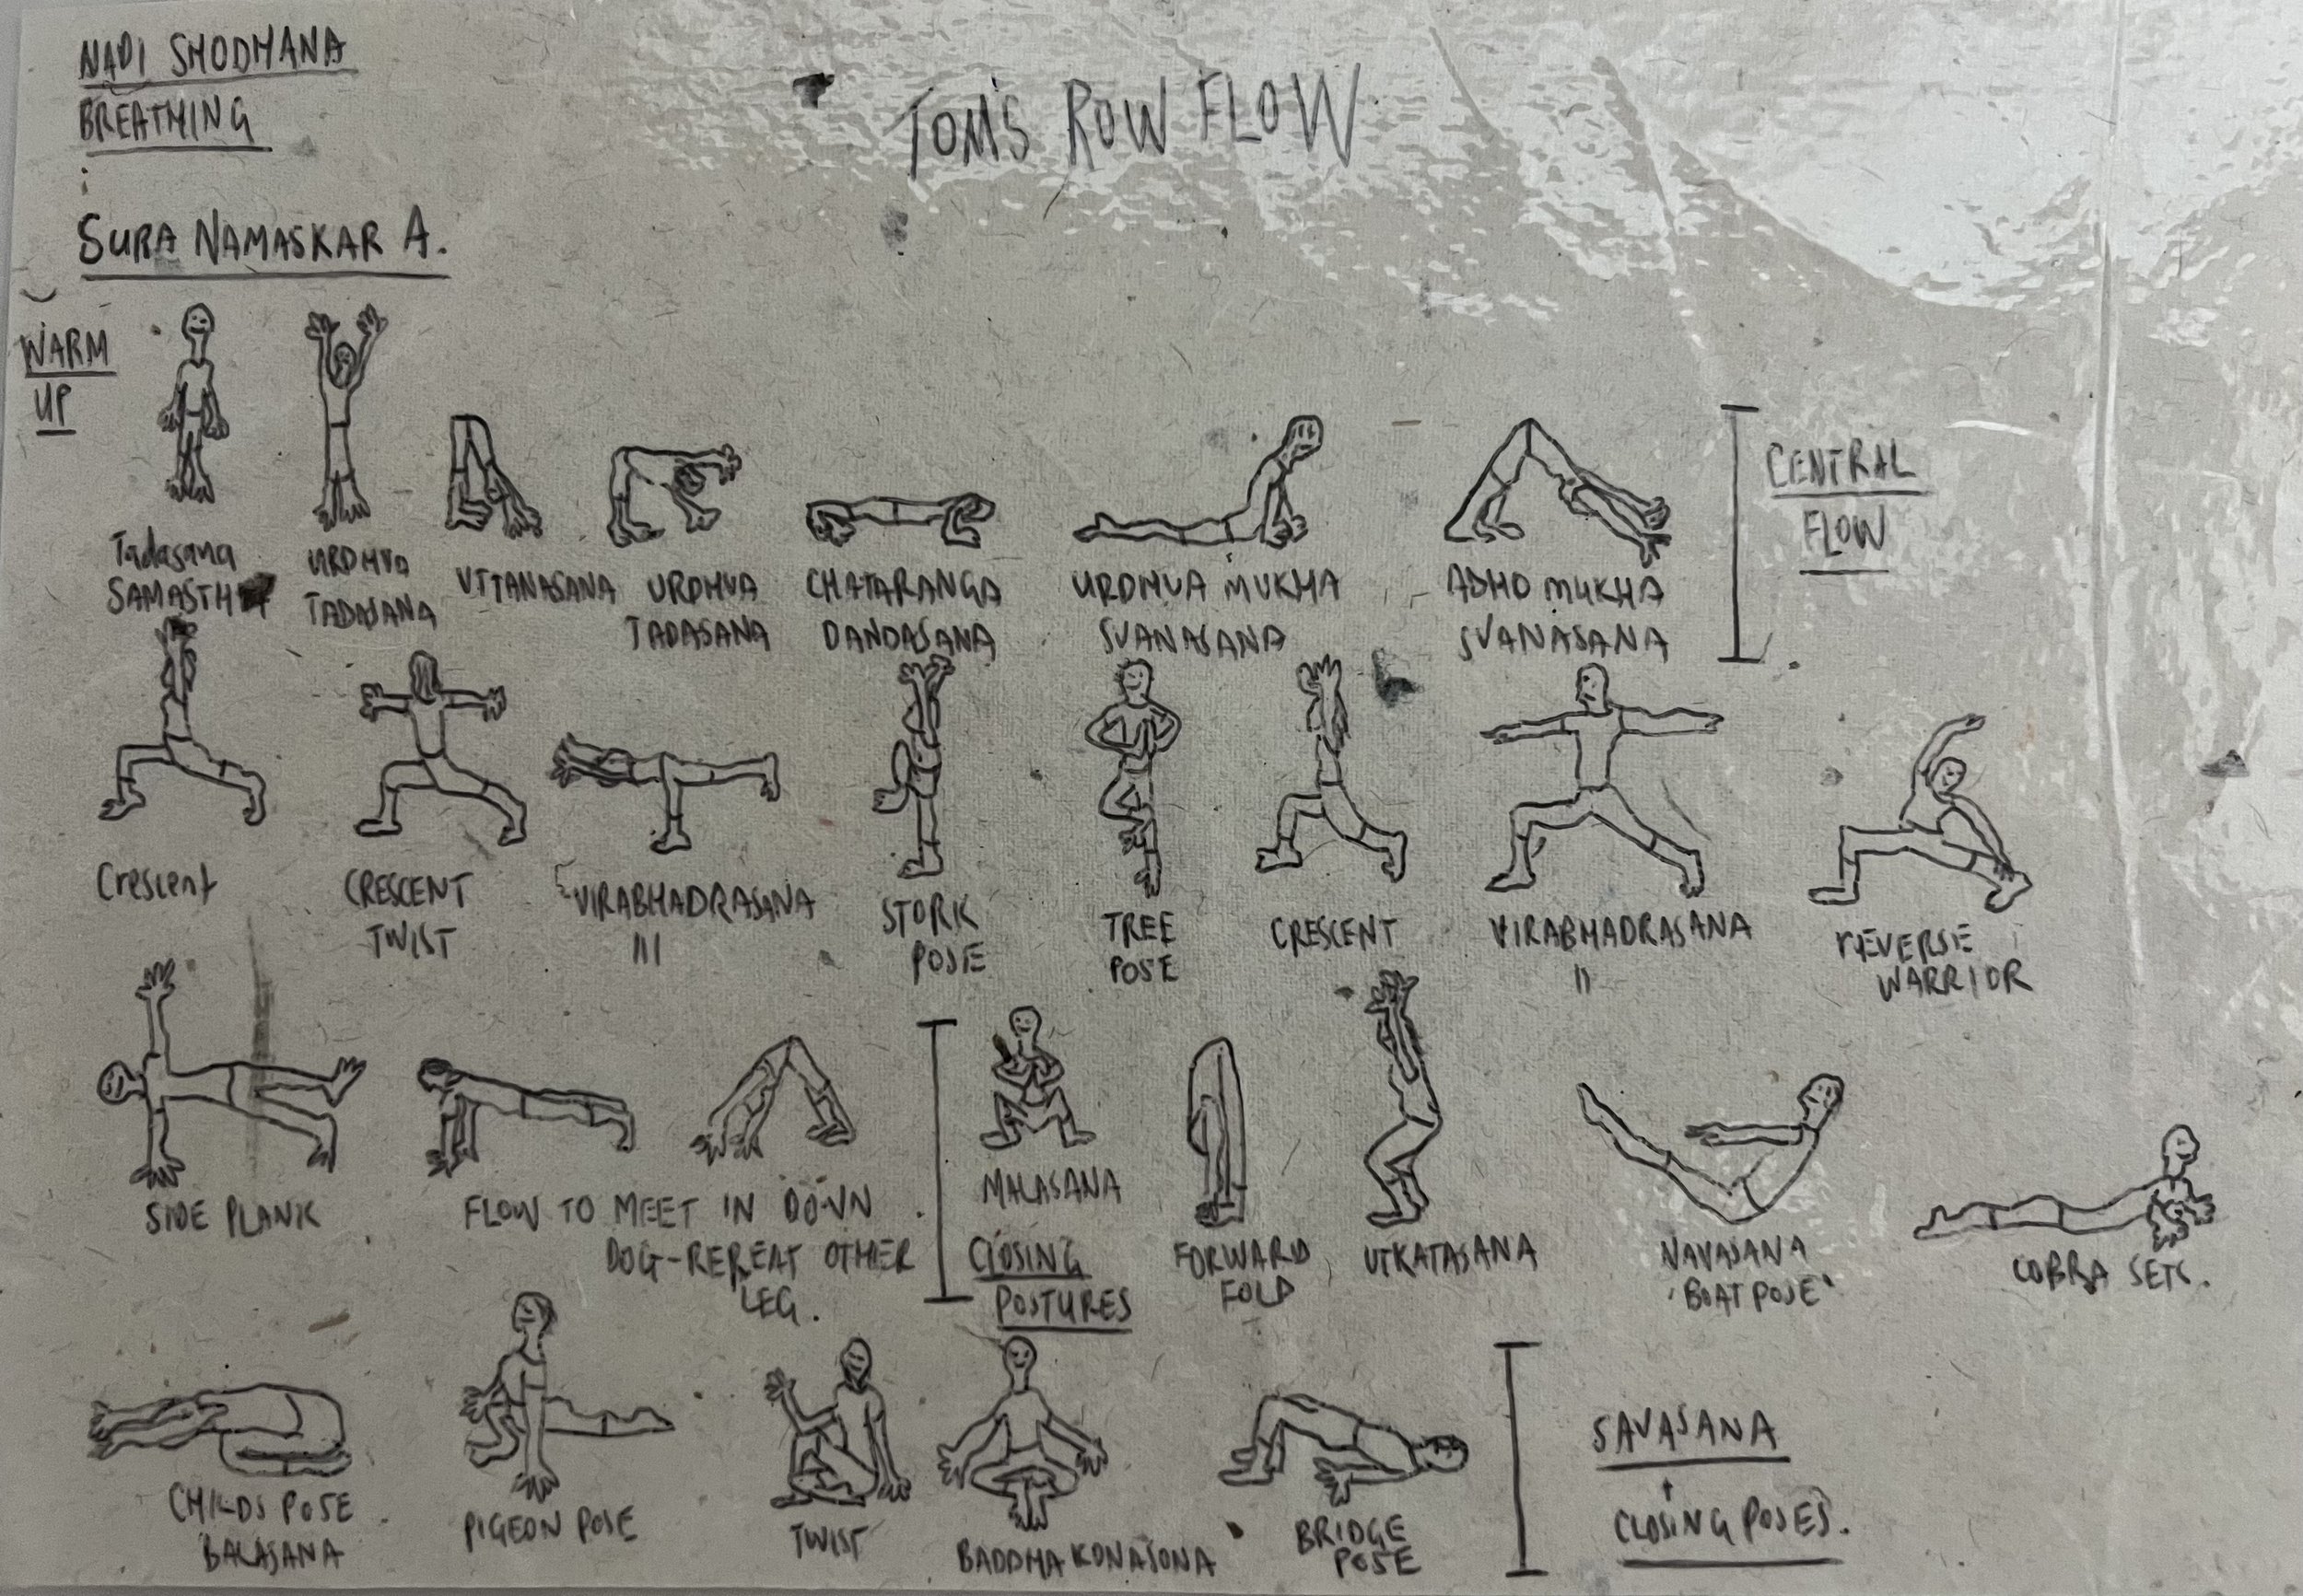 NADI SHODHANA
BREATHING
TOM'S ROW FLOW
SURA NAMASKAR A.
WARM
UP
Tadasana
SAMASTH
URDHVA
TADASANA
UTTANASANA
URDHVA
TADASANA
CHATARANGA
DANDASANA
URDHVA MUKHA
SVANASANA
ADHO MUKHA
SVANASANA
CENTRAL
FLOW
Crescent
CRESCENT
TWIST
VIRABHADRASANA
III
STORK
POSE
TREE
POSE
CRESCENT
VIRABHADRASANA
II
REVERSE
WARRIOR
SIDE PLANK
FLOW TO MEET IN DOWN
DOG-REPEAT OTHER
LEG.
MALASANA
CLOSING
POSTURES
FORWARD
FOLD
UTKATASANA
NAVASANA
'BOAT POSE'
COBRA SETS.
CHILDS POSE
BALASANA
PIGEON POSE
TWIST
BADDHA KONASONA
BRIDGE
POSE
SAVASANA
+
CLOSING POSES.